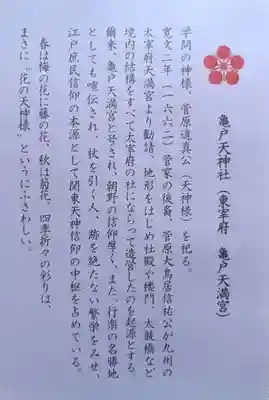 亀戸天神社（東宰府 亀戸天満宮）
学問の神様、菅原道真公（天神様）を祀る。
寛文二年（一六六二）菅家の後裔、菅原大鳥居信祐公が九州の
太宰府天満宮より勧請、地形をはじめ社殿や楼門、太鼓橋など
境内の結構をすべて太宰府の社にならって造営したのを起源とする。
爾来、亀戸天満宮と号され、朝野の信仰厚く、また、行楽の名勝地
としても喧伝され、杖を引く人、跡を絶たない繁栄をみせ、
江戸庶民信仰の本源として関東天神信仰の中枢を占めている。
春は梅の花に藤の花、秋は菊花、四季折々の彩りは、
まさに"花の天神様"というにふさわしい。